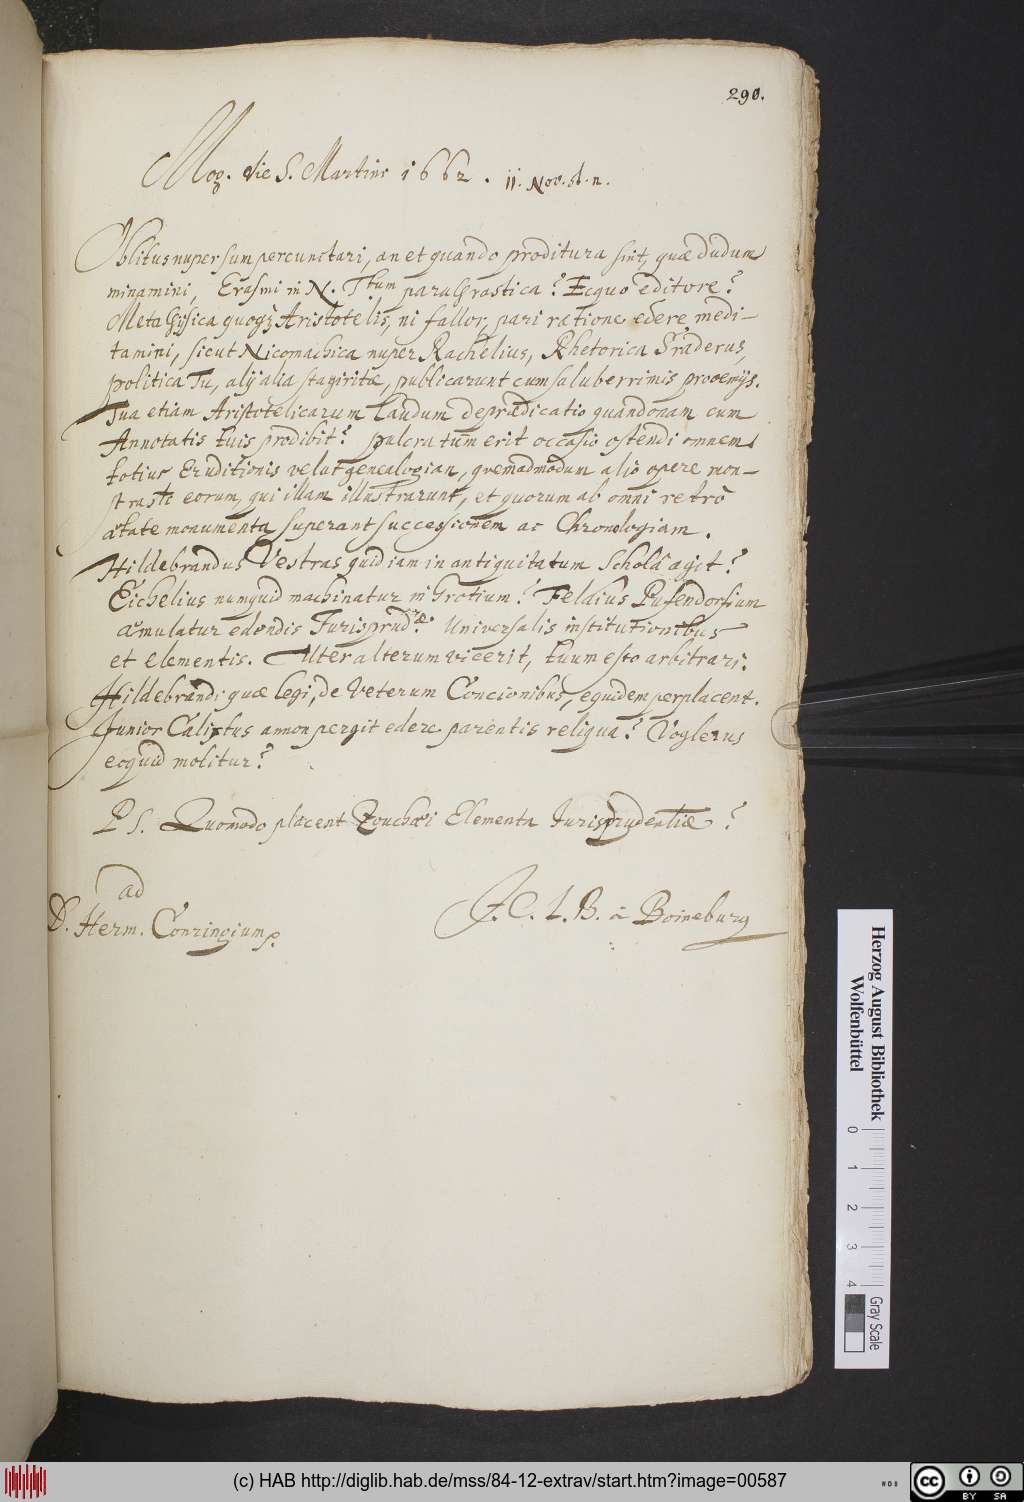 290.
Mog. die S. Martini 1662. 11. Nov. st. n.
Oblitus nuper sum percunctari, an et quando proditura sint, quæ dudum
minamini, Erasmi in N. Ttum paraphrastica? Ecquo editore?
Metaphysica quoqz Aristotelis, ni fallor, pari ratione edere medi-
tamini, sicut Nicomachica nuper Rachelius, Rhetorica Sraderus,
politica Tu, alij alia stagiritæ, publicarunt cum saluberrimis prooemijs.
Tua etiam Aristotelicarum laudum deprædicatio quandonam cum
Annotatis tuis prodibit? pulcra tum erit occasio ostendi omnem
totius Eruditionis velut genealogian, quemadmodum alio opere mon-
strasti eorum, qui illam illustrarunt, et quorum ab omni retrò
ætate monumenta superant successionem ac Chronologiam.
Hildebrandus Vestras quid iam in antiquitatum Scholâ agit?
Eichelius numquid machinatur in Grotium? Feldius Pufendorfium
æmulatur edendis Jurisprud.æ Universalis institutionibus
et elementis. Uter alterum vicerit, tuum esto arbitrari.
Hildebrandi quæ legi, de Veterum Concionibus, equidem perplacent.
Junior Calixtus annon pergit edere parentis reliqua? Voglerus
ecquid molitur?
P S. Quomodo placent Zouchæi Elementa Jurisprudentiæ?
ad
D. Herm. Conringium.
J. C. L. B. à Boineburg
Herzog August Bibliothek
Wolfenbüttel
0 1 2 3 4
Gray Scale
(c) HAB http://diglib.hab.de/mss/84-12-extrav/start.htm?image=00587
WDB
cc BY SA